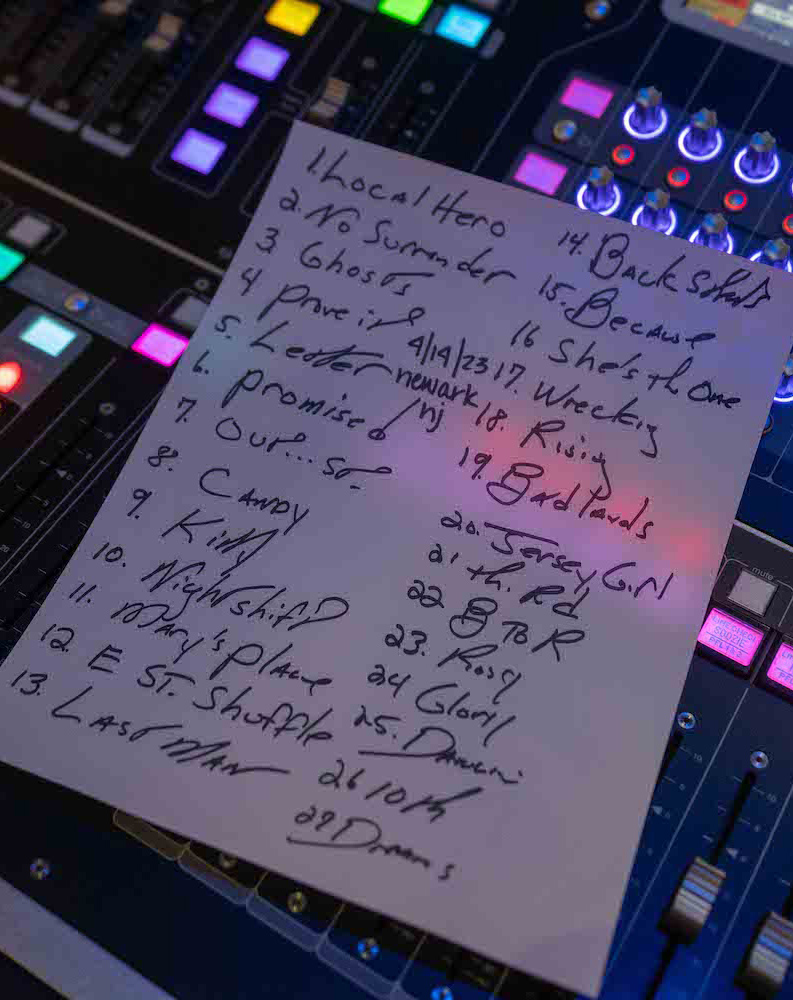 1. Local Hero
2. No Surrender
3. Ghosts
4 Prove it
5. Letter
6. Promised
7. Our... St.
8. Candy
9. Kitty
10. Nightshift
11. Mary's Place
12. E St. Shuffle
13. Last Man
4/14/23
newark
nj
14. Backstreets
15. Because
16 She's th One
17. Wrecking
18. Rising
19. Badlands
20. Jersey Girl
21 th. Rd
22 B to R
23. Rosy
24 Glory
25. Dancin
26 10th
27 Dreams
mute